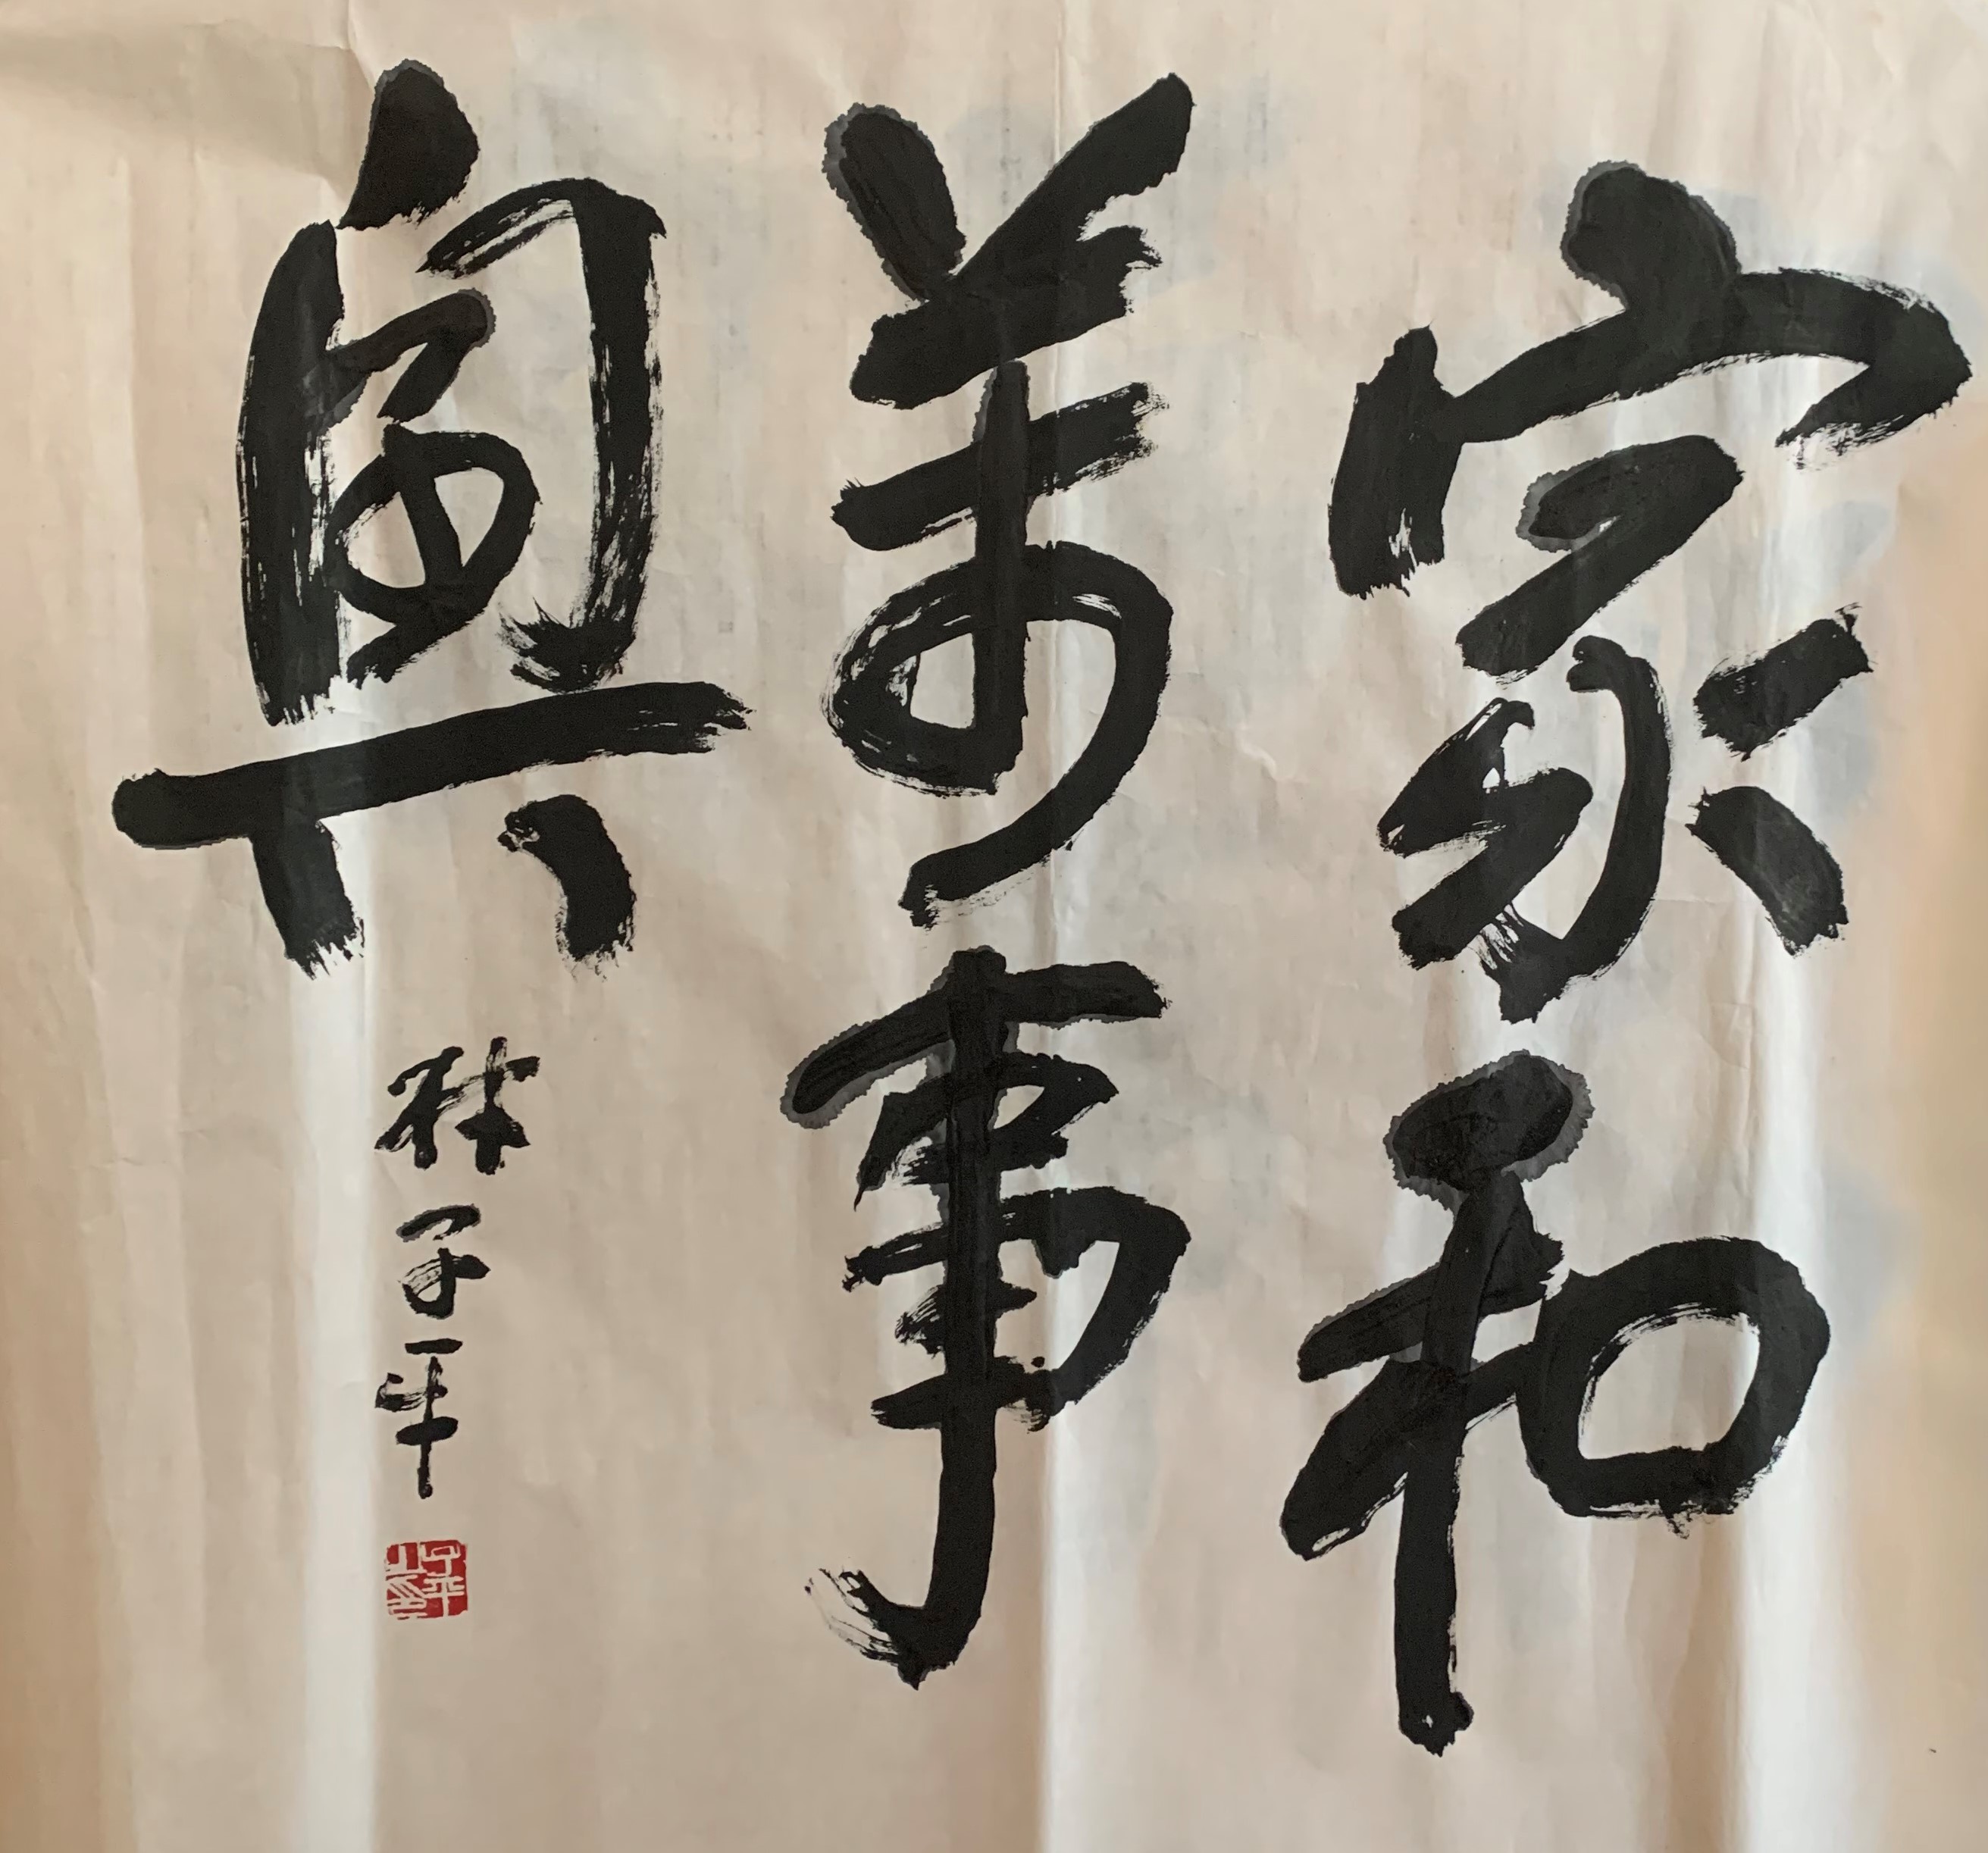 家和
萬事
興
林子平
子平之印